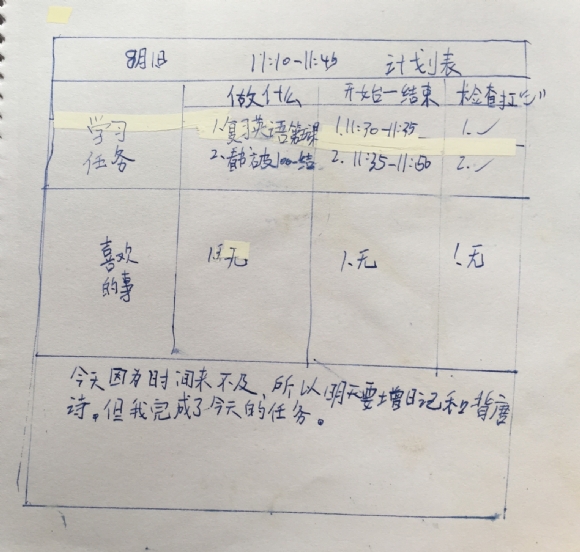 8月1日 11:10-11:45 计划表
做什么 开始-结束 检查打“✓”
学习任务
1.复习英语第 课 1.11:30-11:35 1.✓
2. 2.11:35-11:50 2.✓
喜欢的事
1.无 1.无 1.无
今天因为时间来不及,所以明天要增日记和背唐
诗。但我完成了今天的任务。